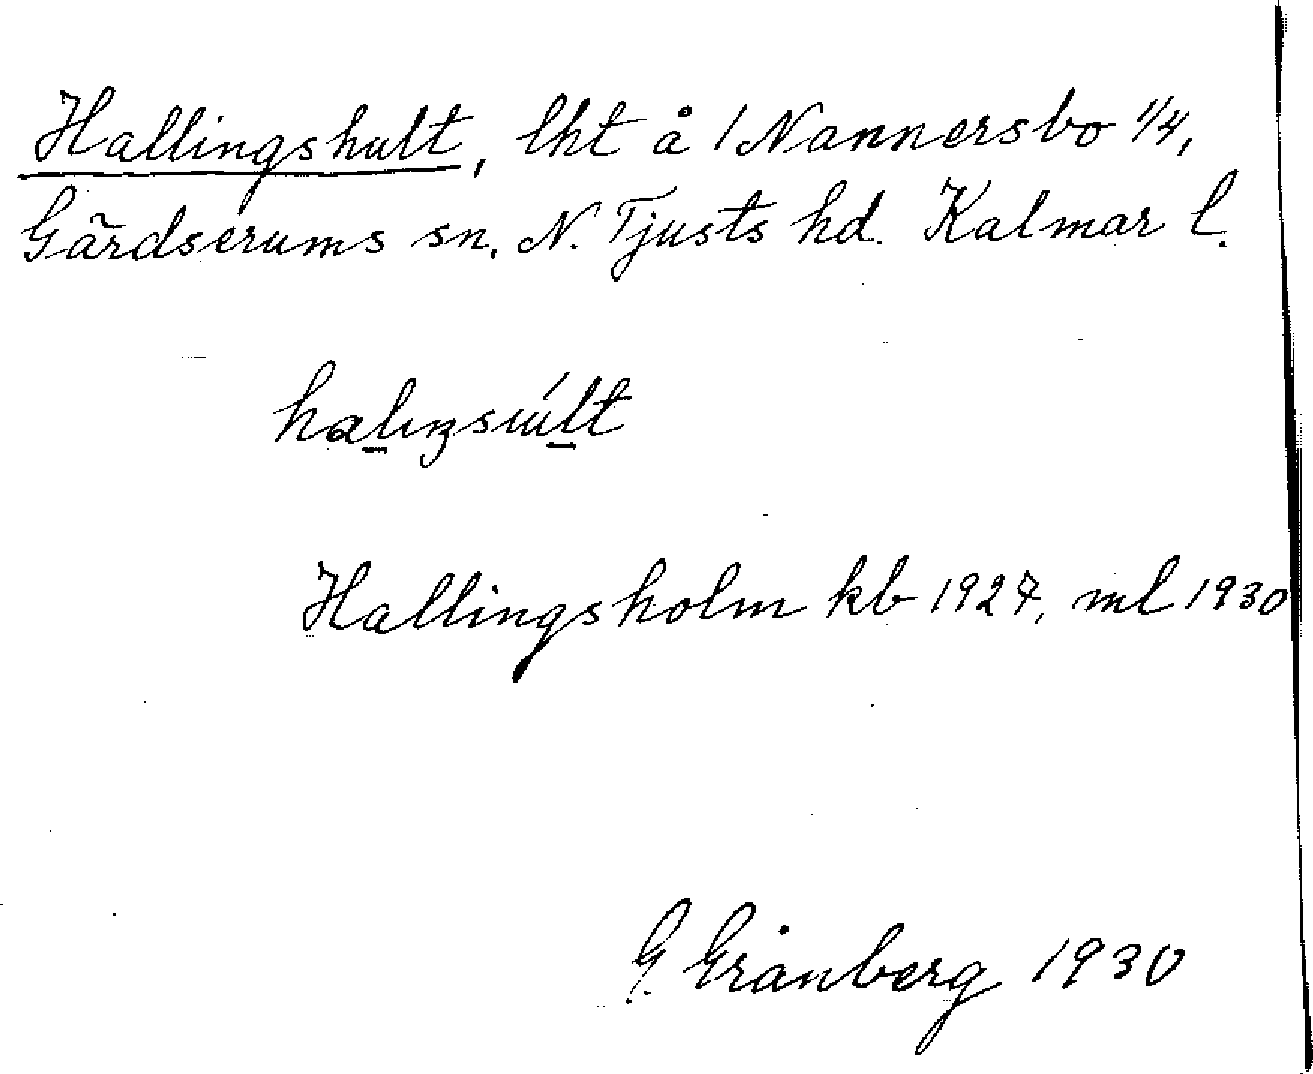 Hallingshult, lht å 1 Nannersbo 1/4,
Gärdserums sn. N. Tjusts hd. Kalmar l.
Hallingsholm kb 1927, ml 1930
G. Grånberg 1930